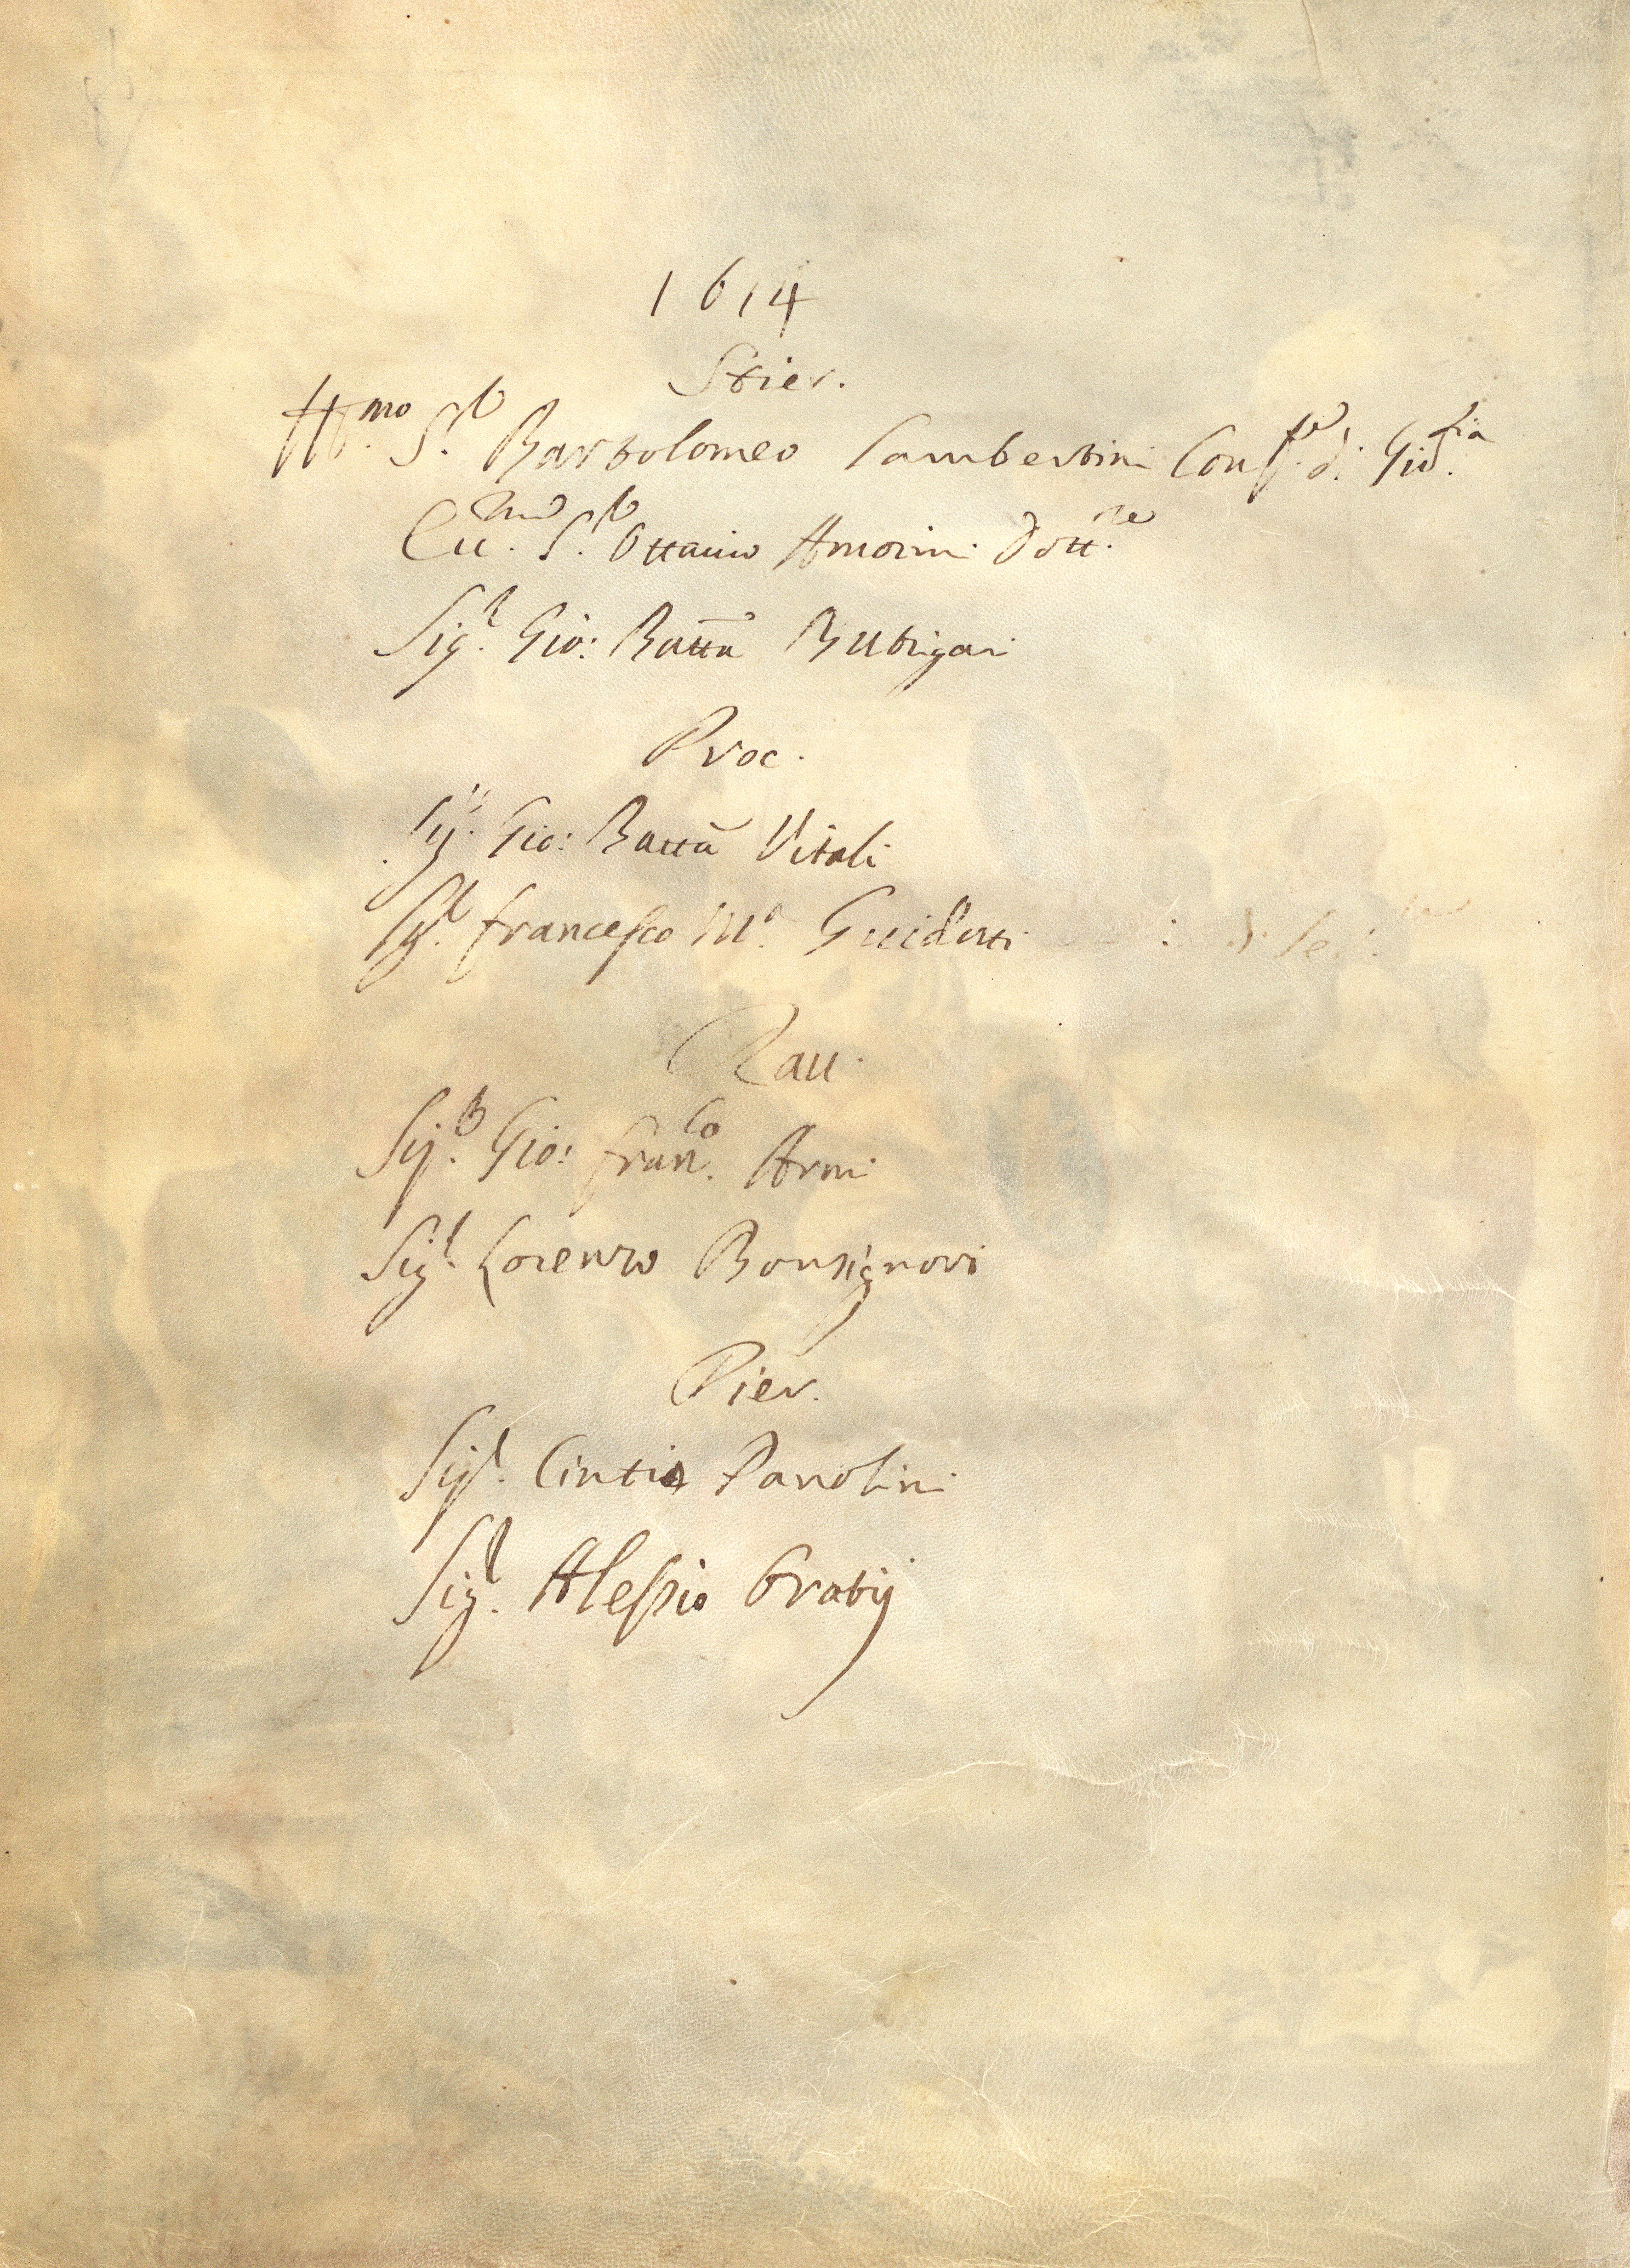 1614
Stier.
Ill.mo S.r Bartolomeo Lambertini Conf.re di Giu.tia
Ecc.mo S.r Ottavio Amorini Dott.re
Sig.r Gio: Batta Butrigari
Proc.
Sig.r Gio: Batta Vitali
Sig.r francesco M.a Guidotti
Rau.
Sig.r Gio: fran.co Armi
Sig.r Lorenzo Bonsignori
Pier.
Sig.r Cintio Panolini
Sig.r Alessio Oratij